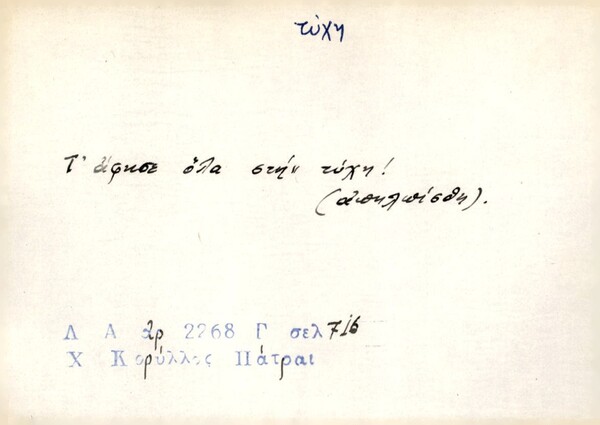 τύχη
Τ' ἄφησε ὅλα στήν τύχη!
(ἀπηλπίσθη).
Λ Α ἀρ 2268 Γ σελ 716
Χ Κορύλλος Πάτραι